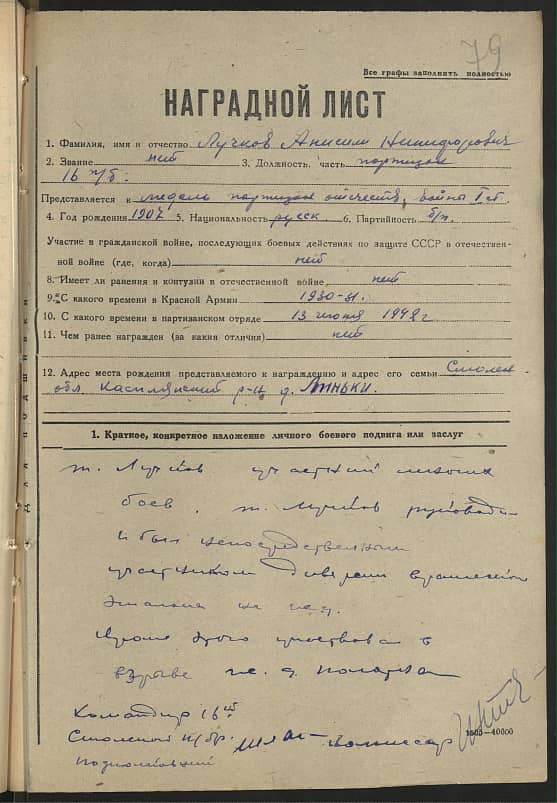 79
Все графы заполнить полностью
НАГРАДНОЙ ЛИСТ
1. Фамилия, имя и отчество Лучков Анисим Никифорович
2. Звание нет 3. Должность, часть партизан
16 п/б.
Представляется к медаль партизан отечеств. войны I ст.
4. Год рождения 1907 5. Национальность русск. 6. Партийность б/п.
Участие в гражданской войне, последующих боевых действиях по защите СССР в отечествен-
ной войне (где, когда) нет
8. Имеет ли ранения и контузии в отечественной войне нет
9. С какого времени в Красной Армии 1930-31.
10. С какого времени в партизанском отряде 13 июня 1942 г
11. Чем ранее награжден (за какия отличия) нет
12. Адрес места рождения представляемого к награждению и адрес его семьи Смолен
обл. Касплянский р-н д. Линьки.
Для подшивки
1. Краткое, конкретное изложение личного боевого подвига или заслуг
т. Лучков участник многих
боев. т. Лучков руководил
и был непосредственным
участником диверсии вражеского
эшелона на ж.д.
Кроме этого участвовал в
взрыве ж.д. полотна
Командир 16ой
Смоленской п/бр. Комиссар
1000—40000